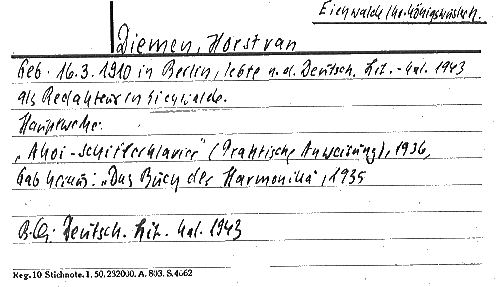 Eichwalde Krs. Königswusterh.
Diemen, Horst van
Geb. 16.3.1910 in Berlin, lebte n. d. Deutsch. Lit.-Kal. 1943
als Redakteur in Eichwalde.
Hauptwerke:
„Ahoi-Schifferklavier" (Praktische Anweisung), 1936,
Gab heraus: „Das Buch der Harmonika", 1935
B.Qu. Deutsch. Lit. Kal. 1943
Reg. 10 Stichnote. I. 50. 232000. A. 803. S. 4662